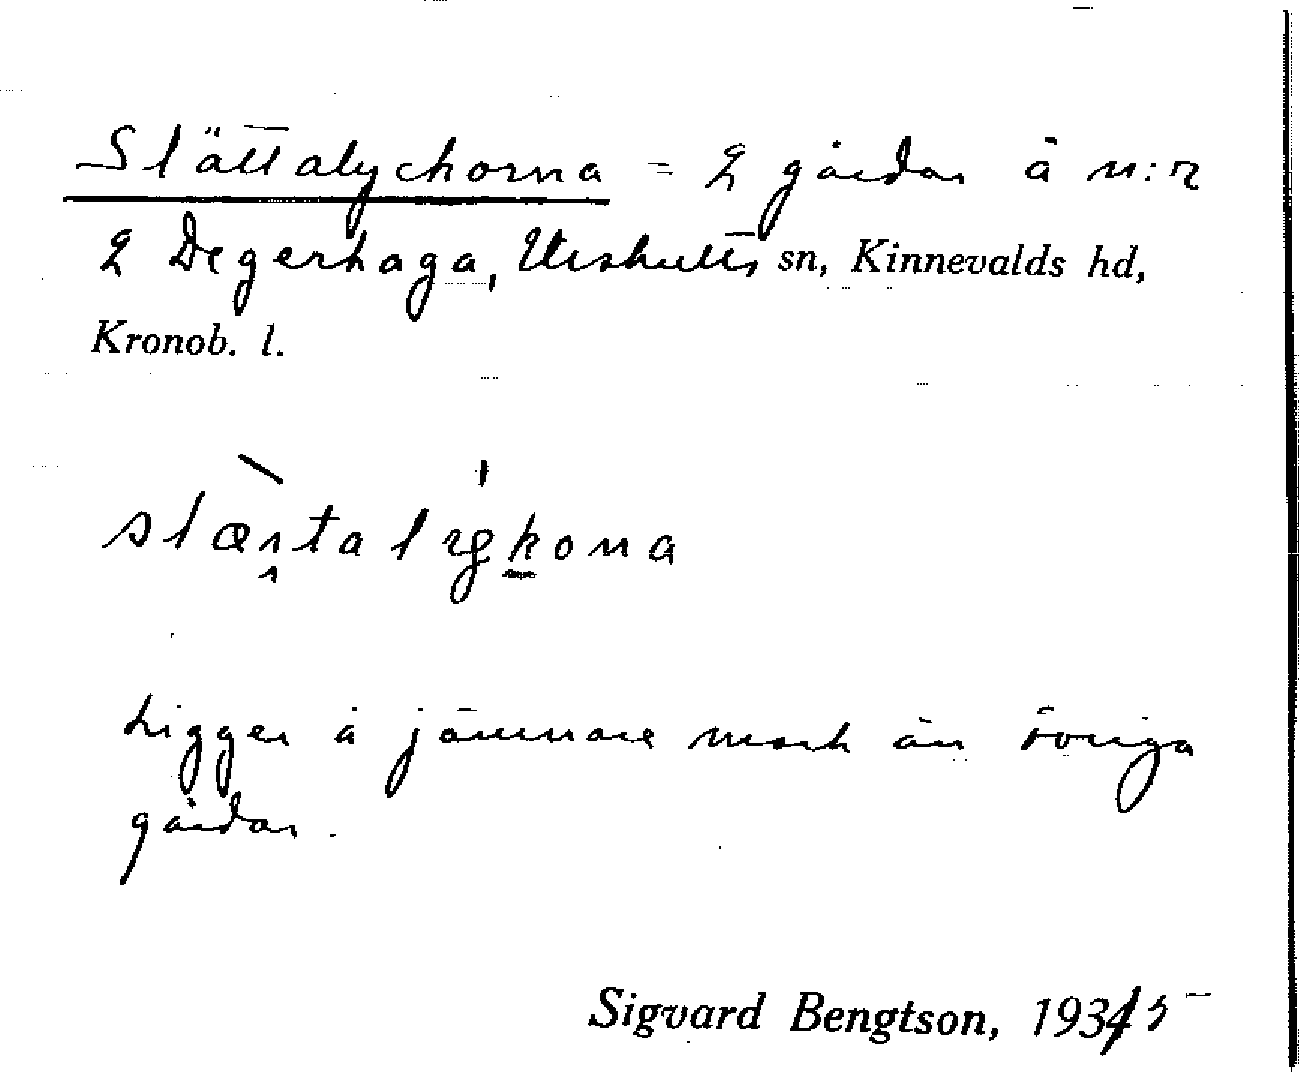 Slättalyckorna = 2 gårdar å n:r
2 Degerhaga, Urshults sn, Kinnevalds hd,
Kronob. l.
Ligger å jämnare mark än övriga
gårdar.
Sigvard Bengtson, 1935